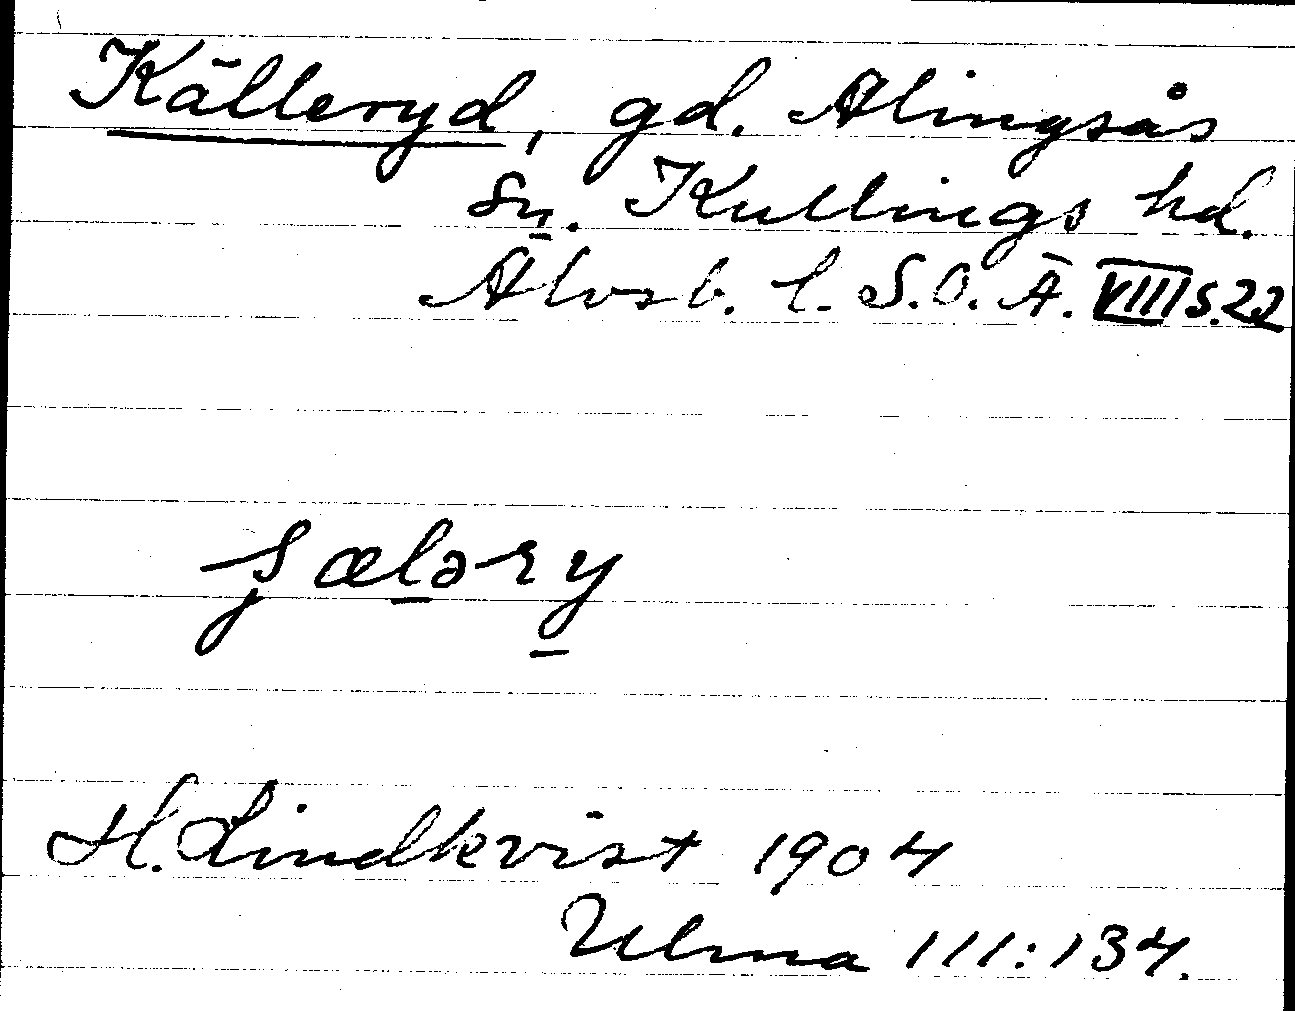 Källeryd, gd. Alingsås
sn. Kullings hd.
Älvsb. l. S.O.Ä. VIII s.22
H. Lindkvist 1904
Ulma 111:134.